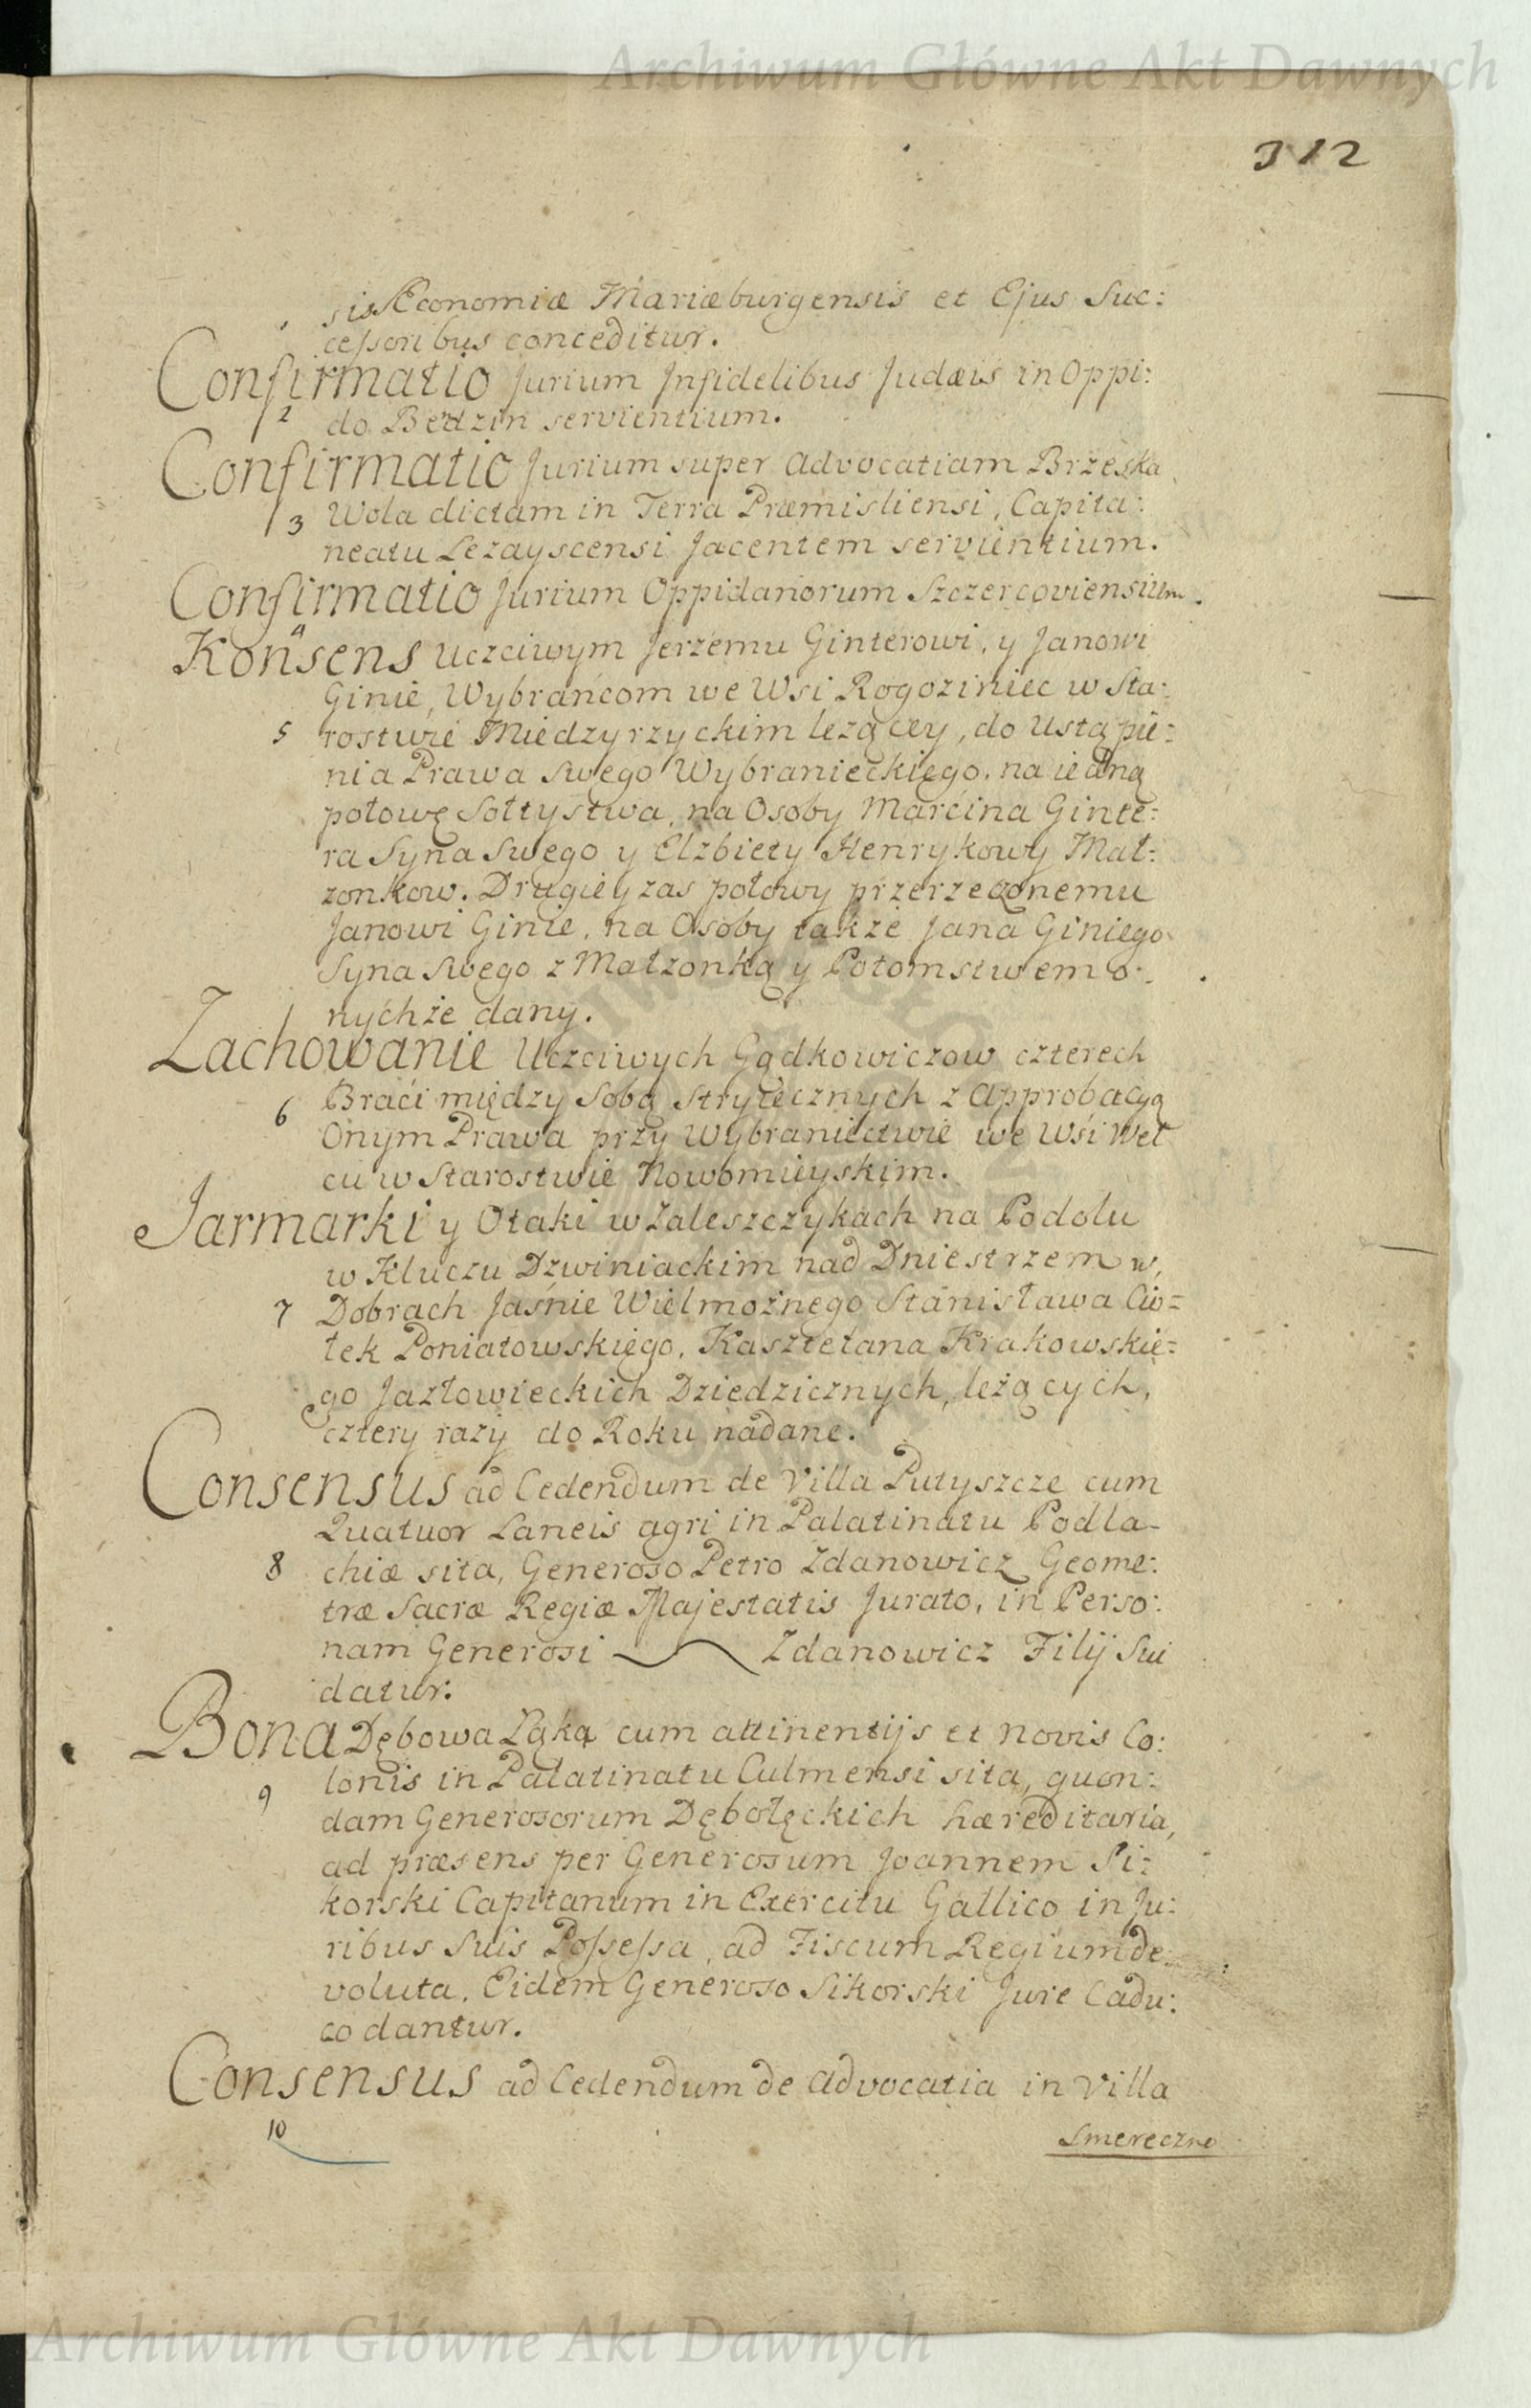 Archiwum Główne Akt Dawnych
312
sis Æconomiæ Mariæburgensis et Ejus Suc:
ceſsoribus conceditur.
Confirmatio Jurium Infidelibus Judæis in Oppi:
2 do Bendzin servientium.
Confirmatio Jurium super Advocatiam Brzeska
3 Wola dictam in Terra Præmisliensi, Capita:
neatu Lezayscensi Jacentem servientium.
Confirmatio Jurium Oppidanorum Szczercoviensium.
4
Konsens Uczciwym Jerzemu Ginterowi, y Janowi
Ginie, Wybrańcom we Wsi Rogoziniec w Sta:
5 rostwie Miedzyrzyckim leżącey, do Ustąpie:
nia Prawa Swego Wybranieckiego, na iedną
połowę Sołtystwa, na Osoby Marcina Ginte:
ra Syna Swego y Elżbiety Henrykowy Mał:
zonkow. Drugiey zas połowy przerzeczonemu
Janowi Ginie, na Osoby także Jana Giniego
Syna Swego z Małzonką y Potomstwem o:
nychże dany.
Zachowanie Uczciwych Gądkowiczow czterech
6 Braci między Sobą Stryiecznych z Approbacyą
Onym Prawa przy Wybraniectwie we Wsi Wel
cu w Starostwie Nowomieyskim.
Jarmarki y Otaki w Zaleszczykach na Podolu
w Kluczu Dzwiniackim nad Dniestrzem w,
7 Dobrach Jaśnie Wielmożnego Stanisława Cio=
łek Poniatowskiego, Kasztelana Krakowskie=
go Jazłowieckich Dziedzicznych, leżących,
cztery razy do Roku nadane.
Consensus ad Cedendum de Villa Putyszcze cum
Quatuor Laneis agri in Palatinatu Podla-
8 chiæ sita, Generoso Petro Zdanowicz Geome:
træ Sacræ Regiæ Majestatis Jurato, in Perso:
nam Generosi Zdanowicz Filij Sui
datur.
Bona Dębowa Ląka cum attinentijs et novis Co:
9 lonis in Palatinatu Culmensi sita, quon:
dam Generosorum Dębołęckich hæreditaria,
ad præsens per Generosum Joannem Si:
korski Capitanum in Exercitu Gallico in Ju:
ribus Suis Poſseſsa, ad Fiscum Regium de:
voluta, Eidem Generoso Sikorski Jure Cadu:
co dantur.
Consensus ad Cedendum de Advocatia in Villa
10
Smereczne
Archiwum Główne Akt Dawnych